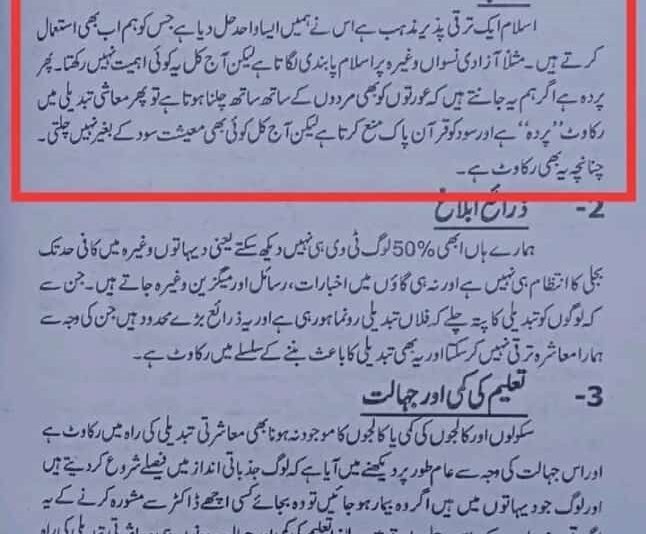 اسلام ایک ترقی پذیر مذہب ہے اس نے ہمیں ایسا واحد حل دیا ہے جس کو ہم اب بھی استعمال
کرتے ہیں۔ مثلاً آزادی نسواں وغیرہ پر اسلام پابندی لگاتا ہے لیکن آج کل یہ کوئی اہمیت نہیں رکھتا۔ پھر
پردہ ہے اگر ہم یہ جانتے ہیں کہ عورتوں کو بھی مردوں کے ساتھ ساتھ چلنا ہوتا ہے تو پھر معاشی تبدیلی میں
رکاوٹ ”پردہ“ ہے اور سود کو قرآن پاک منع کرتا ہے لیکن آج کل کوئی بھی معیشت سود کے بغیر نہیں چلتی۔
چنانچہ یہ بھی رکاوٹ ہے۔
2- ذرائع ابلاغ
ہمارے ہاں ابھی 50% لوگ ٹی وی ہی نہیں دیکھ سکتے یعنی دیہاتوں وغیرہ میں کافی حد تک
بجلی کا انتظام ہی نہیں ہے اور نہ ہی گاؤں میں اخبارات، رسائل اور میگزین وغیرہ جاتے ہیں۔ جن سے
کہ لوگوں کو تبدیلی کا پتہ چلے کہ فلاں تبدیلی رونما ہو رہی ہے اور یہ ذرائع بڑے محدود ہیں جن کی وجہ سے
ہمارا معاشرہ ترقی نہیں کر سکتا اور یہ بھی تبدیلی کا باعث بننے کے سلسلے میں رکاوٹ ہے۔
3- تعلیم کی کمی اور جہالت
سکولوں اور کالجوں کی کمی یا کالجوں کا موجود نہ ہونا بھی معاشرتی تبدیلی کی راہ میں رکاوٹ ہے
اور اس جہالت کی وجہ سے عام طور پر دیکھنے میں آیا ہے کہ لوگ جذباتی انداز میں فیصلے شروع کر دیتے ہیں
اور لوگ جو دیہاتوں میں ہیں اگر وہ بیمار ہو جائیں تو وہ بجائے کسی اچھے ڈاکٹر سے مشورہ کرنے کے یہ